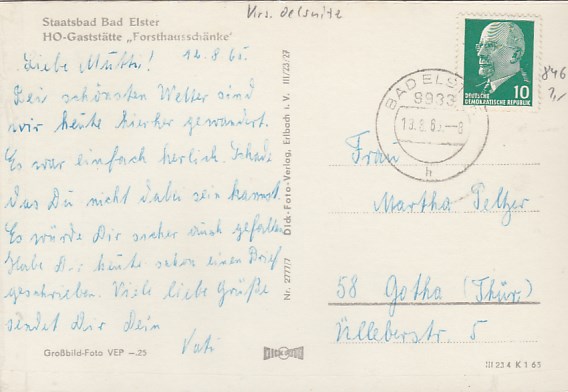 Krs. Oelsnitz
Staatsbad Bad Elster
HO-Gaststätte „Forsthausschänke"
Liebe Mutti! 12.8.65.
Bei schönsten Wetter sind
wir heute hierher gewandert.
Es war einfach herlich. Schade
das Du nicht dabei sein kannst.
Es würde Dir sicher auch gefallen
Habe Dir heute schon einen Brief
geschrieben. Viele liebe Grüße
sendet Dir Dein
Vati
Großbild-Foto VEP —.25
Nr. 2777/7 Dick-Foto-Verlag, Erlbach i. V. III/23/27
DICK-FOTO
BAD ELSTER
9933
13.8.65.-8
h
10
DEUTSCHE
DEMOKRATISCHE REPUBLIK
846
Frau
Martha Peltzer
58 Gotha (Thür.)
Ülleberstr. 5
III 23 4 K 1 65